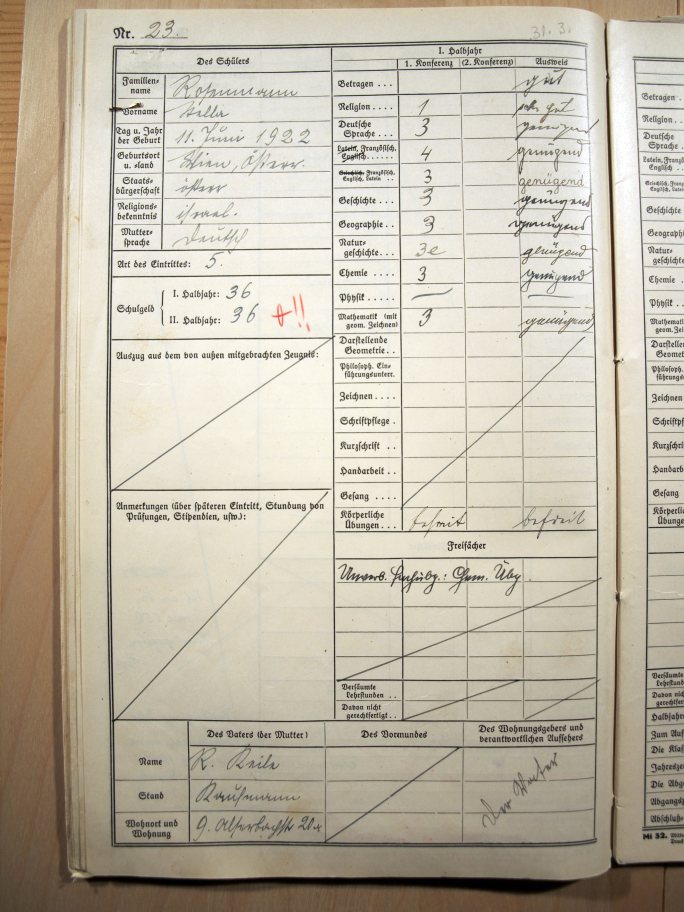 Nr. 23.
31. 3.
Des Schülers
Familien-
name
Rosenmann
Vorname
Stella
Tag u. Jahr
der Geburt
11. Juni 1922
Geburtsort
u. -land
Wien, Österr.
Staats-
bürgerschaft
österr
Religions-
bekenntnis
israel.
Mutter-
sprache
Deutsch
Art des Eintrittes: 5.
Schulgeld
I. Halbjahr: 36
II. Halbjahr: 36 !!
Auszug aus dem von außen mitgebrachten Zeugnis:
Anmerkungen (über späteren Eintritt, Stundung von
Prüfungen, Stipendien, usw.):
I. Halbjahr
1. Konferenz (2. Konferenz) Ausweis
Betragen . . . gut
Religion . . . 1 sehr gut
Deutsche
Sprache . . 3 genügend
Latein, Französisch,
Englisch . . . . . . 4 genügend
Griechisch, Französisch,
Englisch, Latein . . 3 genügend
Geschichte . . 3 genügend
Geographie . . 3 genügend
Natur-
geschichte . . 3e genügend
Chemie . . . . 3 genügend
Physik . . . . . — —
Mathematik (mit
geom. Zeichnen) 3 genügend
Darstellende
Geometrie . .
Philosoph. Ein-
führungsunterr.
Zeichnen . . . .
Schriftpflege .
Kurzschrift . .
Handarbeit . .
Gesang . . . .
Körperliche
Übungen . . befreit befreit
Freifächer
Unverb. : Chem. Übg.
Versäumte
Lehrstunden . .
Davon nicht
gerechtfertigt . .
Des Vaters (der Mutter) Des Vormundes Des Wohnungsgebers und
verantwortlichen Aufsehers
Name R. Keile
Stand Kaufmann
Der Vater
Wohnort und
Wohnung
9. Alserbachstr 20a
Betragen . .
Religion . . .
Deutsche
Sprache . .
Latein, Französisch
Englisch . . .
Griechisch, Französ.
Englisch, Latein
Geschichte
Geographie
Natur-
geschichte
Chemie . .
Physik . .
Philosoph.
Zeichnen
Kurzschrift
Handarbeit
Gesang
Körperliche
Übungen
Versäumte
Lehrstunden
Davon nicht
Halbjahr
Mi 52.